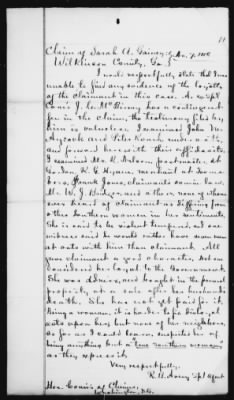 Claim of Sarah A. Gainey
Wilkinson County, Ga.
I would respectfully state that I was
unable to find any evidence of the loyalty
of the claimant in this case. A. Expl.
J. C. McBurney has a contingent
fee in the claim, the testimony filed by
him is valueless. I examined John M.
and Pete Roach under oath,
and forward herewith their affidavits
I examined Mr. R. Nelson, postmaster, at
Gordon, marshal at
Frank Jones, claimants son in law,
Mr. W. J. Butler, and others, none of whom
ever heard of claimant as differing from
other Southern women in her sentiments.
She is said to be violent tempered, and one
witness said he would rather have ten men
at outs with him than claimant. All
give claimant a good character. Not one
considered her loyal to the Government.
She was administratrix, and bought in the personal
property at a sale after her husbands
death. She has not yet paid for it.
Being a woman, it is harder to fix disloyal
acts upon her; but none of her neighbors,
so far as I could learn, suspected her of
being anything but a "true Southern woman"
as they express it.
Very respectfully,
R. B. Avery, Spl Agent
Hon. Com'rs of Claims,
Washington, D.C.